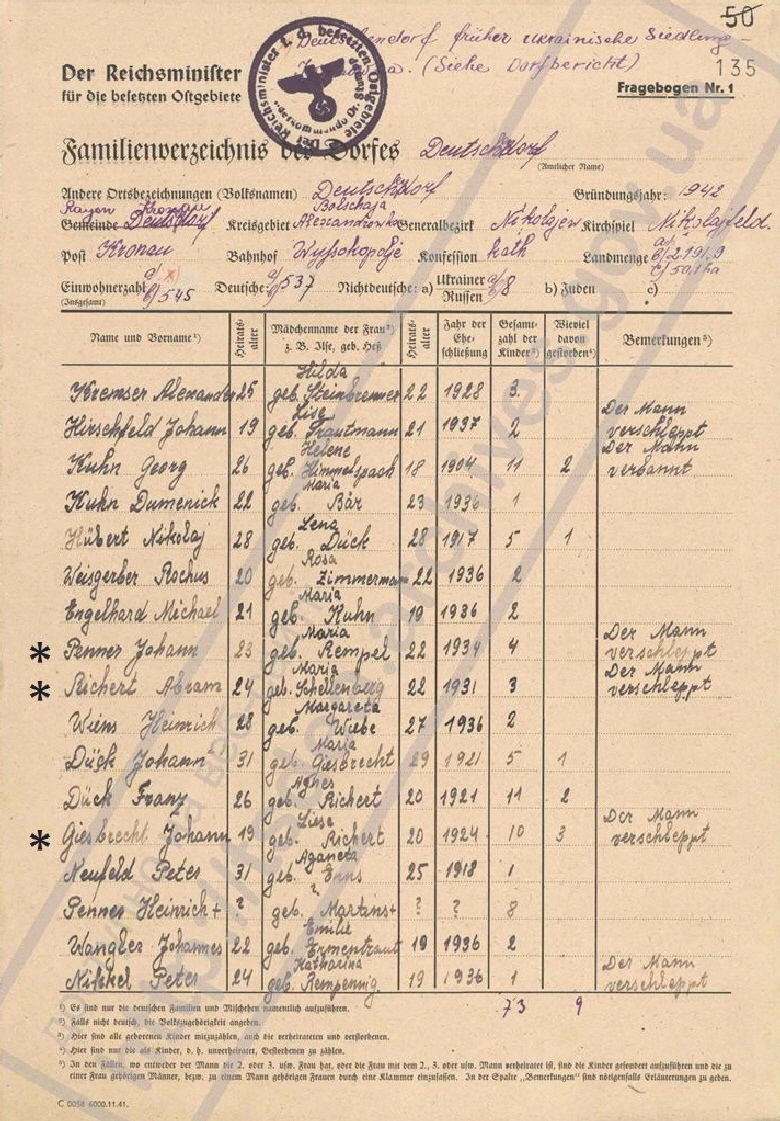 50
Deutschendorf früher ukrainische Siedlung
(Siehe Dorfbericht)
135
Der Reichsminister
für die besetzten Ostgebiete
Fragebogen Nr. 1
Familienverzeichnis des Dorfes Deutschdorf
(Amtlicher Name)
Andere Ortsbezeichnungen (Volksnamen) Deutschdorf Gründungsjahr: 1942
Rayon Kronau Bolschaja
Gemeinde Deutschdorf Kreisgebiet Alexandrowka Generalbezirk Nikolajew Kirchspiel Nikolajfeld.
Post Kronau Bahnhof Wyssokopolje Konfession kath Landmenge
Einwohnerzahl 545 Deutsche: 537 Nichtdeutsche: a) Ukrainer Russen 8 b) Juden c)
(Insgesamt)
Name und Vorname¹) Heirats-alter Mädchenname der Frau²) z. B. Ilse, geb. Heß Heirats-alter Jahr der Ehe-schließung Gesamt-zahl der Kinder³) Wieviel davon gestorben⁴) Bemerkungen⁵)
Kremser Alexander 25 Hilda geb. Steinbrenner 22 1928 3
Hirschfeld Johann 19 Lise geb. Trautmann 21 1937 2 Der Mann verschleppt
Kuhn Georg 26 Helene geb. Himmelspach 18 1904 11 2 Der Mann verbannt
Kuhn Dumenick 22 Maria geb. Bär 23 1936 1
Hübert Nikolaj 28 Lena geb. Dück 28 1917 5 1
Weisgerber Rochus 20 Rosa geb. Zimmermann 22 1936 2
Engelhard Michael 21 Maria geb. Kuhn 19 1936 2
* Penner Johann 23 Maria geb. Rempel 22 1934 4 Der Mann verschleppt
* Richert Abram 24 Maria geb. Schellenberg 22 1931 3 Der Mann verschleppt
Wiens Heinrich 28 Margareta geb. Wiebe 27 1936 2
Dück Johann 31 Maria geb. Giesbrecht 29 1921 5 1
Dück Franz 26 Agnes geb. Richert 20 1921 11 2
* Giesbrecht Johann 19 Liese geb. Richert 20 1924 10 3 Der Mann verschleppt
Neufeld Peter 31 Aganeta geb. Enns 25 1918 1
Penner Heinrich + ? ? geb. Martins + ? ? 8
Wangler Johannes 22 Emilie geb. Ermentraut 19 1936 2
Nickel Peter 24 Katharina geb. Rempening 19 1936 1 Der Mann verschleppt
73 9
¹) Es sind nur die deutschen Familien und Mischehen namentlich aufzuführen.
²) Falls nicht deutsch, die Volkszugehörigkeit angeben.
³) Hier sind alle geborenen Kinder mitzuzählen, auch die verheirateten und verstorbenen.
⁴) Hier sind nur die als Kinder, d. h. unverheiratet, Gestorbenen zu zählen.
⁵) In den Fällen, wo entweder der Mann die 2. oder 3. usw. Frau hat, oder die Frau mit dem 2., 3. oder usw. Mann verheiratet ist, sind die Kinder gesondert aufzuführen und die zu
einer Frau gehörigen Männer, bezw. zu einem Mann gehörigen Frauen durch eine Klammer einzufassen. In der Spalte „Bemerkungen" sind nötigenfalls Erläuterungen zu geben.
C 0058 6000.11.41.